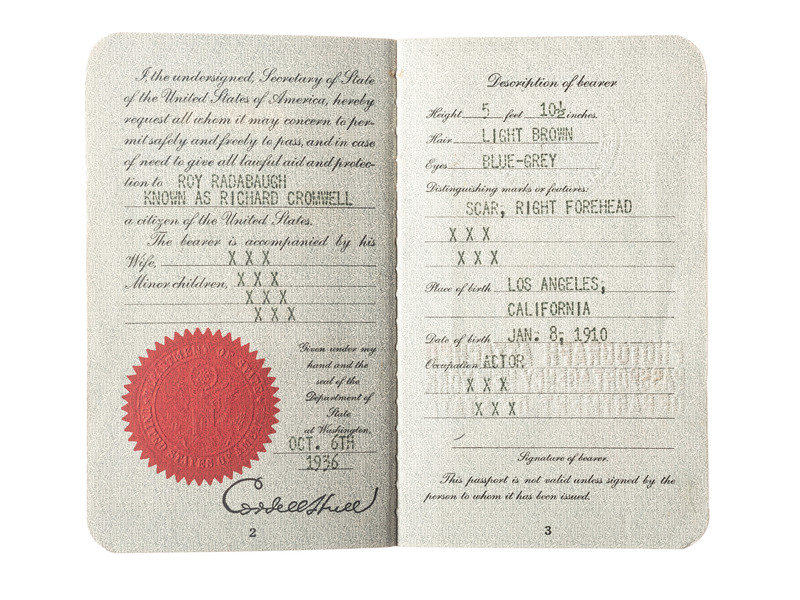 I, the undersigned, Secretary of State
of the United States of America, hereby
request all whom it may concern to per-
mit safely and freely to pass, and in case
of need to give all lawful aid and protec-
tion to ROY RADABAUGH
KNOWN AS RICHARD CROMWELL
a citizen of the United States.
The bearer is accompanied by his
Wife, X X X
Minor children, X X X
X X X
X X X
Given under my
hand and the
seal of the
Department of
State
at Washington,
OCT. 6TH
1936
Cordell Hull
2
Description of bearer
Height 5 feet 10½ inches.
Hair LIGHT BROWN
Eyes BLUE-GREY
Distinguishing marks or features:
SCAR, RIGHT FOREHEAD
X X X
X X X
Place of birth LOS ANGELES,
CALIFORNIA
Date of birth JAN. 8, 1910
Occupation ACTOR
X X X
X X X
Signature of bearer.
This passport is not valid unless signed by the
person to whom it has been issued.
3